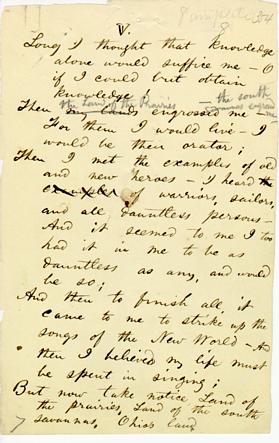 V.
Long I thought that knowledge
alone would suffice me – O
if I could but obtain
knowledge!
the Land of the Prairies
the south
savannas engrossed
me –
Then my lands engrossed me –
For them I would live – I
would be their orator;
Then I met the examples of old
and new heroes – I heard the
examples of warriors, sailors,
and all dauntless persons –
And it seemed to me I too
had it in me to be as
dauntless as any, and would
be so;
And then to finish all it
came to me to strike up the
songs of the New World – And
then I believed my life must
be spent in singing;
But now take notice Land of
the prairies, Land of the south
savannas, Ohio's land
7
84